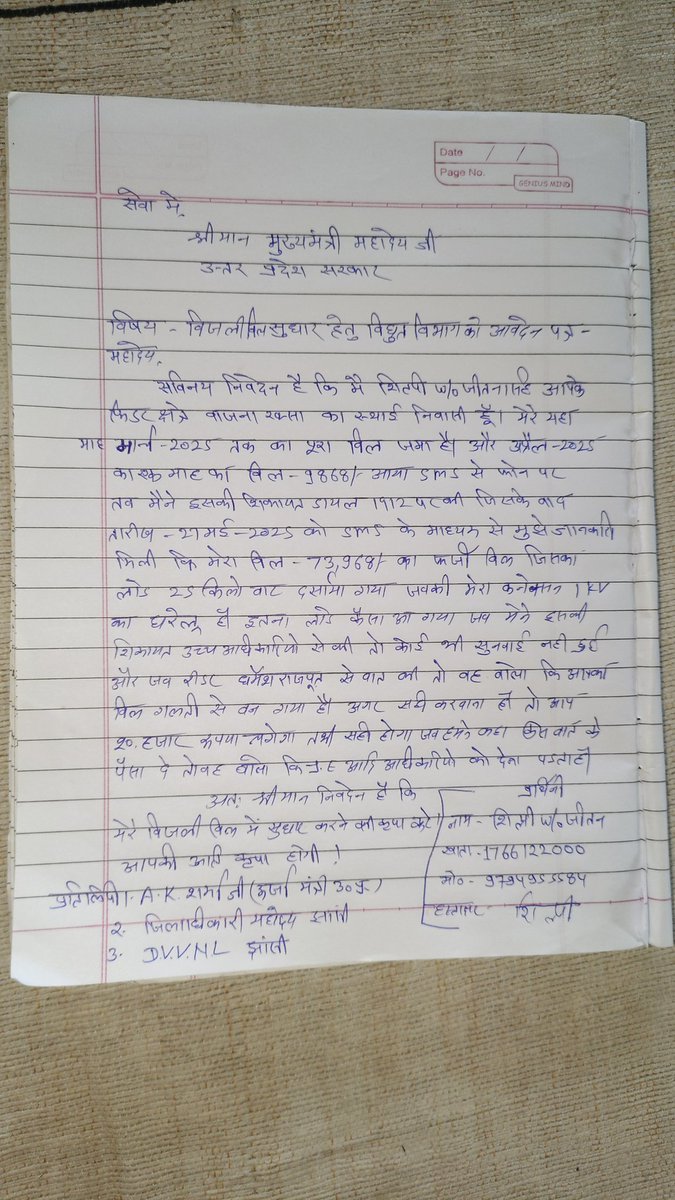 Date / /
Page No.
GENIUS MIND
सेवा में,
श्रीमान मुख्यमंत्री महोदय जी
उत्तर प्रदेश सरकार
विषय - बिजली बिल सुधार हेतु विधुत विभाग को आवेदन पत्र -
महोदय,
सविनय निवेदन है कि मै शिल्पी w/o जीतनसिंह आपके
फिडर क्षेत्र वाजना रक्सा का स्थाई निवासी हूँ। मेरे यहा
माह मार्च-2025 तक का पूरा बिल जमा है। और अप्रैल-2025
का एक माह का बिल - 9868/- आया SMS से फोन पर
तब मैने इसकी शिकायत डायल 1912 पर की जिसके बाद
तारीख - 21 मई - 2025 को SMS के माध्यम से मुझे जानकारी
मिली कि मेरा बिल - 73,968/- का फर्जी बिल जिसका
लोड 25 किलो वाट दर्साया गया जबकी मेरा कनेक्सन 1 KV
का घरेलू है इतना लोड कैसा आ गया जब मेने इसकी
शिकायत उच्च अधिकारियो से की तो कोई भी सुनवाई नही हुई
और जब रीडर धर्मेश राजपूत से बात की तो वह बोला कि आपका
बिल गलती से बन गया है। अगर सही करवाना हो तो आप
20. हजार रूपया लगेगा तभी सही होगा जब हमने कहा किस बात के
पैसा दे तो वह बोला कि J.E आदि अधीकारियो को देना पडता है।
अतः श्रीमान निवेदन है कि
मेरे बिजली बिल में सुधार करने की कृपा करे।
आपकी अति कृपा होगी !
प्रार्थिनी
नाम - शिल्पी w/o जीतन
खाता - 1766122000
मो० - 9794955584
हस्ताक्षर - शिल्पी
प्रतिलिपी 1. A.K. शर्मा जी (ऊर्जा मंत्री उ० प्र०)
2. जिलाधिकारी महोदय झासी
3. D.V.V.NL झांसी